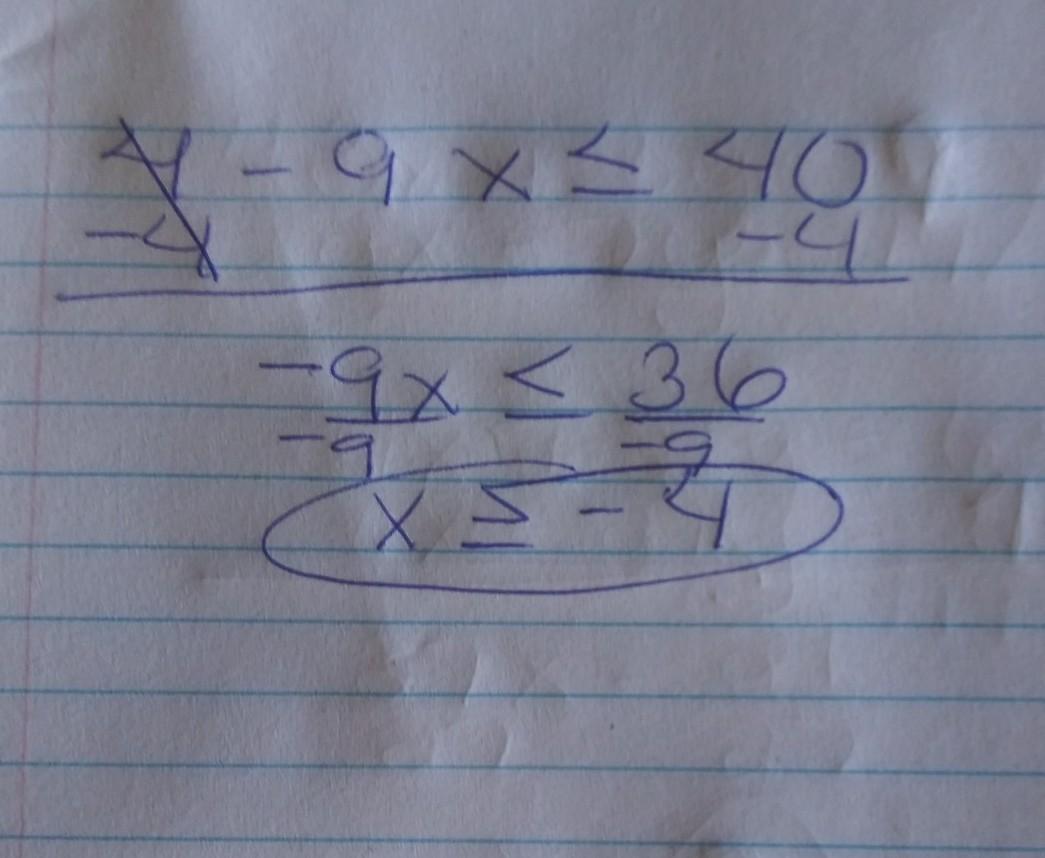 4 - 9x ≤ 40
-4 -4
-9x ≤ 36
-9 -9
x ≥ -4